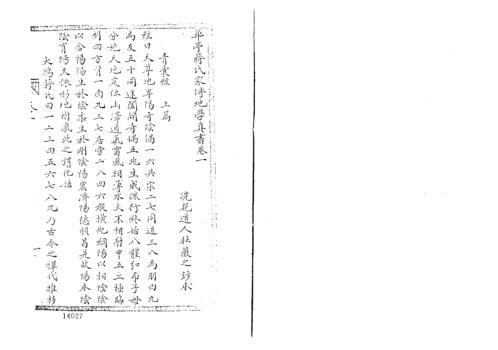 華亭蔣氏家傳地學真書卷一
浣花道人杜薇之鈔本
青囊經 上篇
經曰天尊地卑陽奇陰偶一六共宗二七同道三八為朋四九
為友五十同途闔闢奇偶五兆生成流行終始八體弘布子母
分施天地定位山澤通氣雷風相薄水火不相射中五立極臨
制四方背一面九三七居旁二八四六縱橫紀綱陽以相陰陰
以含陽陽生於陰柔生於剛陰德弘濟陽德順昌是故陽本陰
陰育陽天依形地附氣此之謂化始
大鴻蔣氏曰一二三四五六七八九乃古今之禪代推移
14027